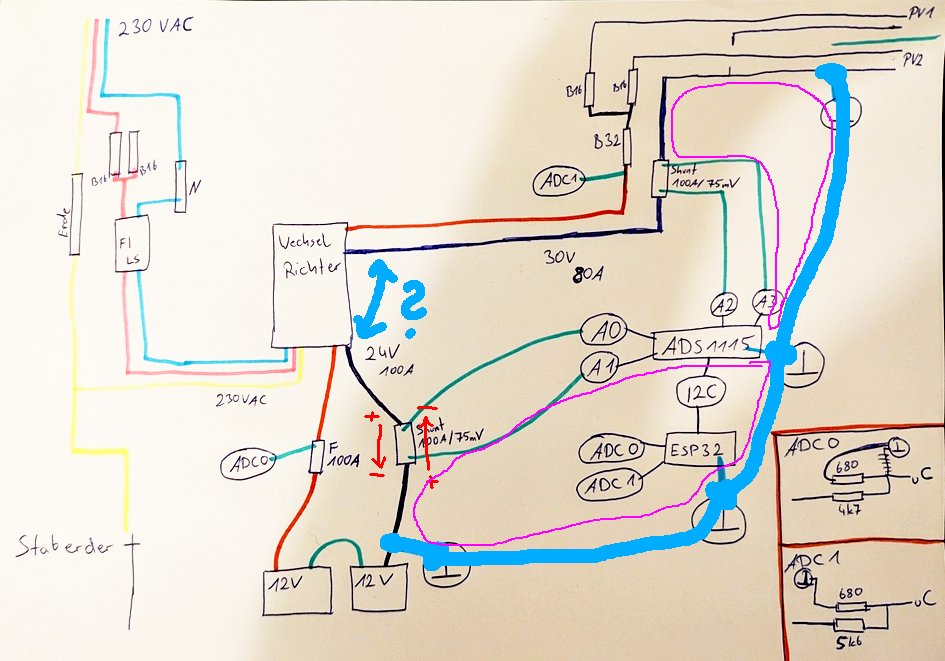 230 VAC
PV1
PV2
B16
B16
B32
ADC1
Shunt
100A/75mV
B16
B16
N
Erde
FI
LS
Vechsel
Richter
30V
80A
?
A2
A3
A0
ADS1115
A1
24V
100A
I2C
230VAC
+
-
Shunt
100A/75mV
-
+
F
100A
ADC0
ADC0
ESP32
ADC1
ADC0
680
uC
4k7
Staberder
12V
12V
ADC1
680
uC
5k6